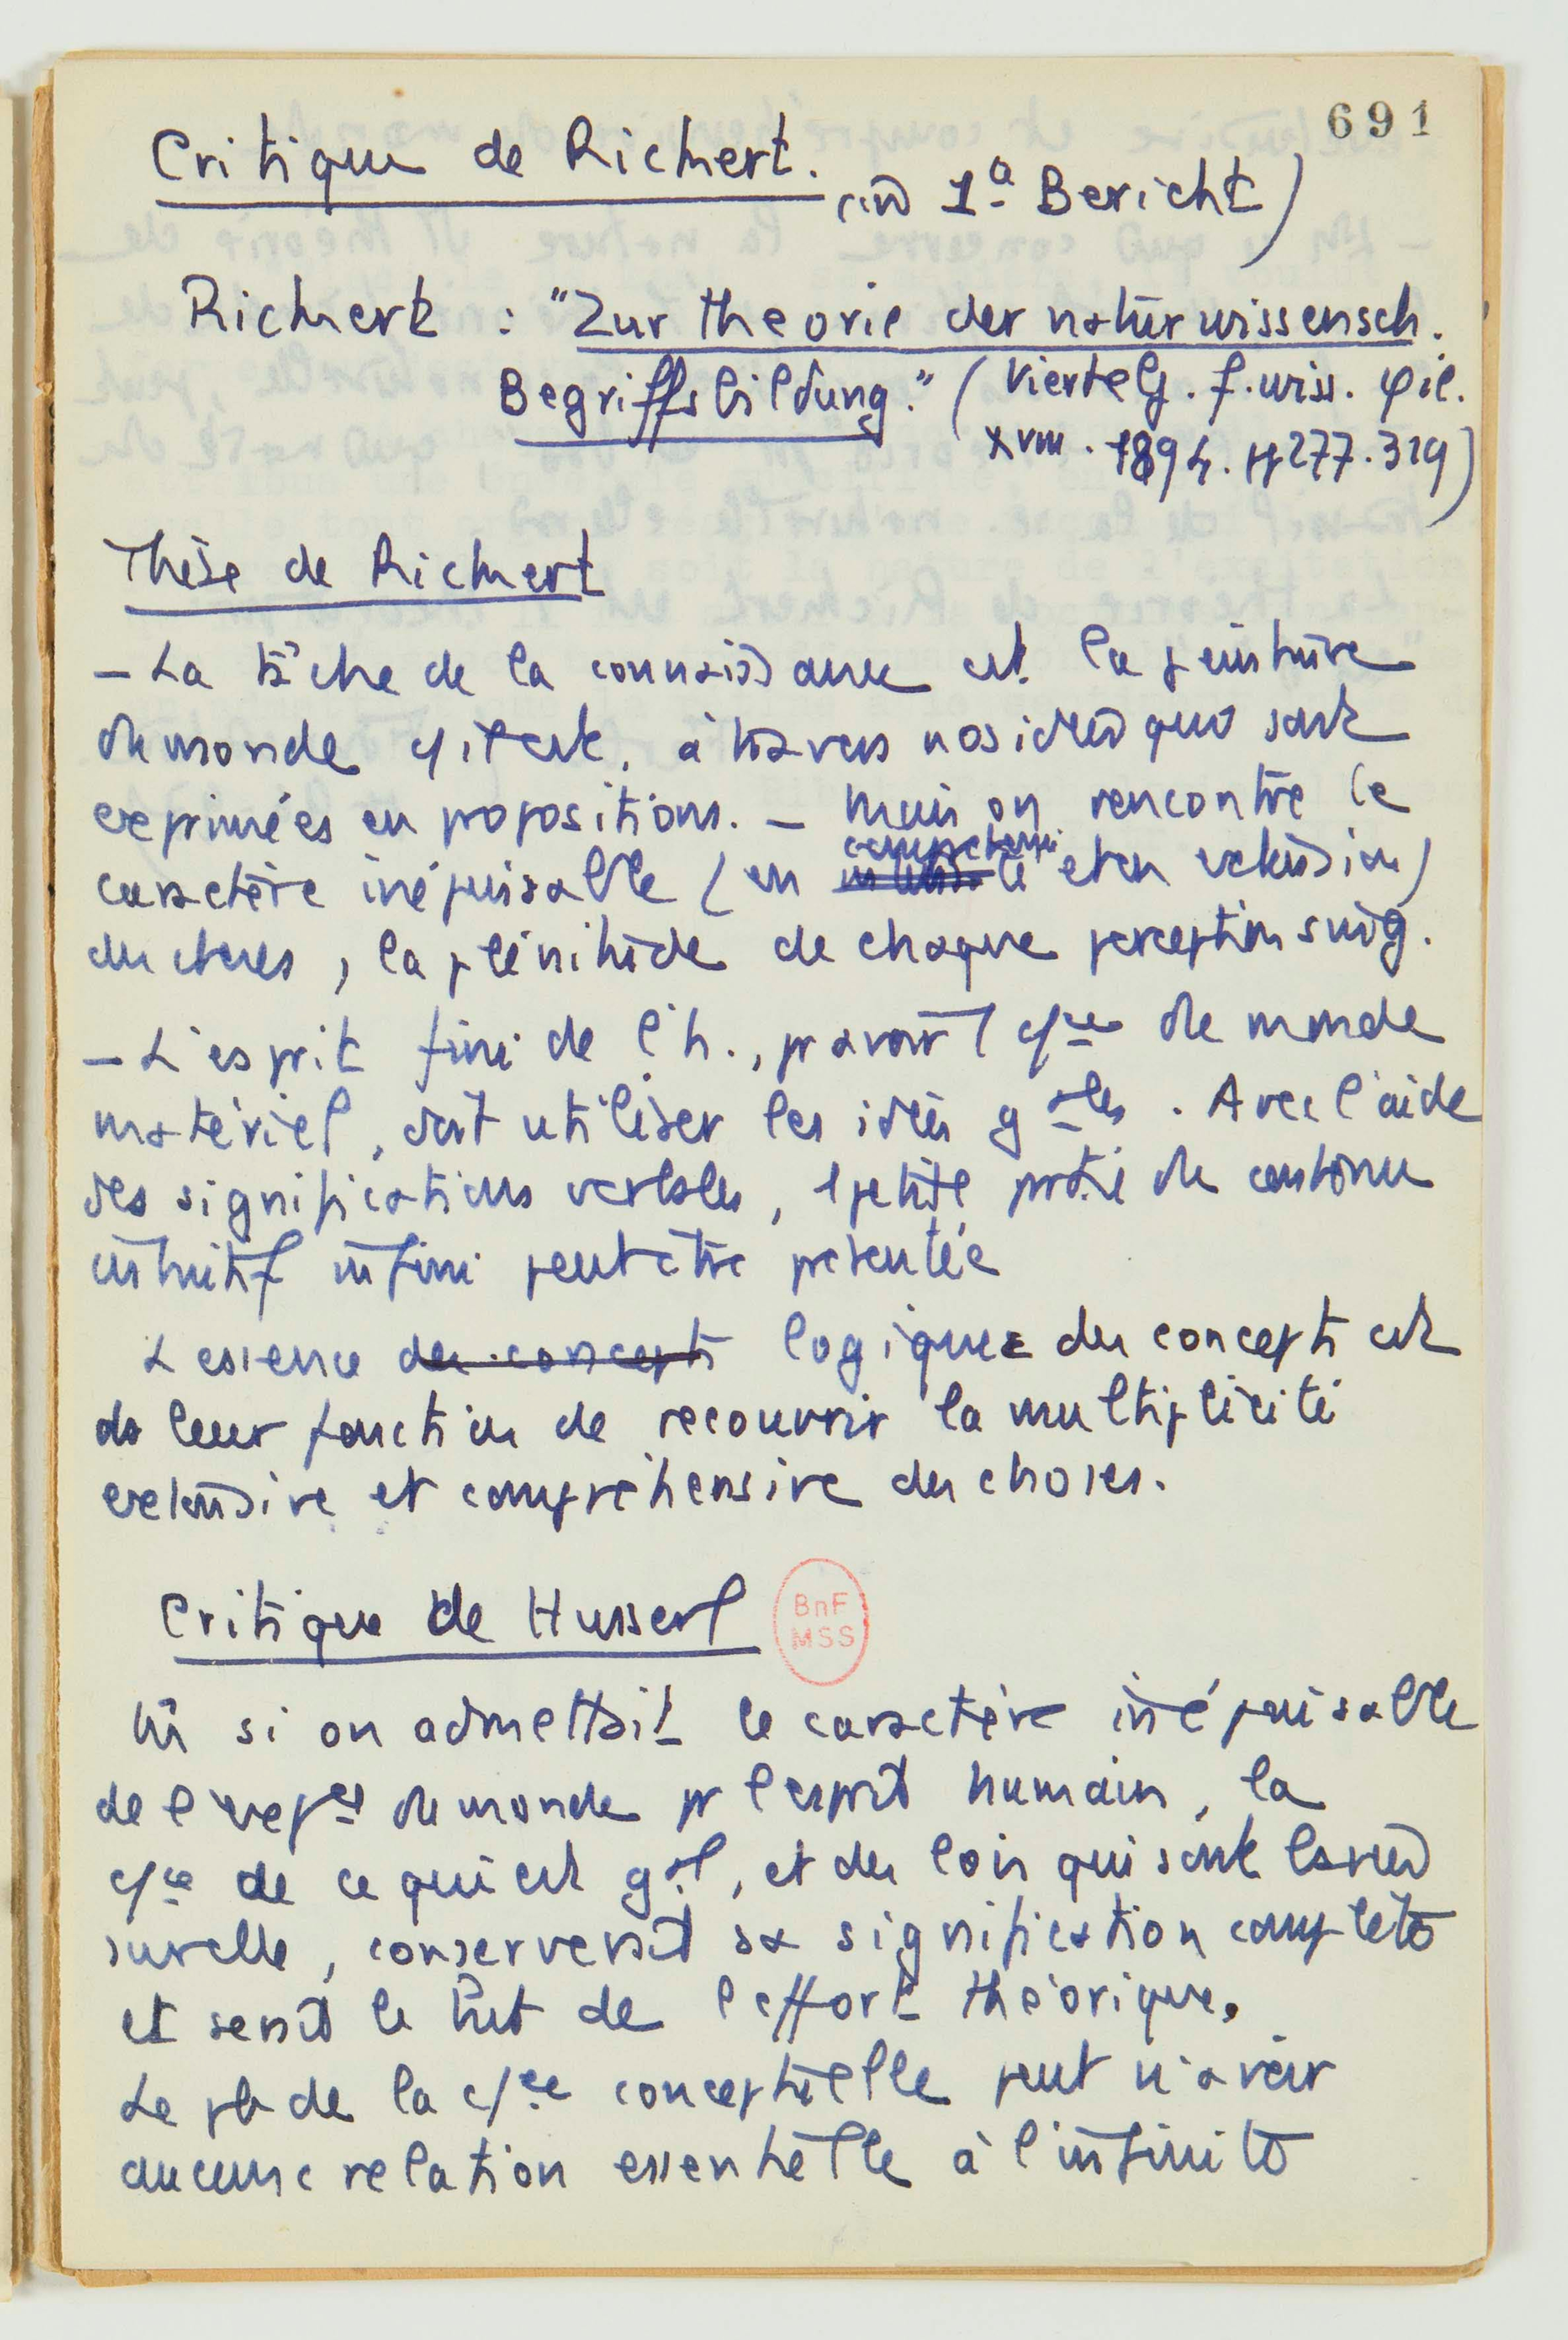 691
Critique de Rickert.
(in 1a Bericht)
Rickert : "Zur Theorie der naturwissensch.
Begriffsbildung." (Viertelj. f. wiss. φil.
XVIII. 1894. pp 277.319)
Thèse de Rickert
– La tâche de la connaissance est la peinture
du monde à travers nos idées qui sont
exprimées en propositions. – Mais on rencontre le
caractère inépuisable (en compréhension et en extension)
des choses, la plénitude de chaque perception sing.
– L'esprit fini de l'h., pr avoir 1 cce du monde
matériel, doit utiliser les idées gales. Avec l'aide
des significations verbales, 1 petite partie du contenu
intuitif infini peut être présentée
L'essence des concepts logique des concepts est
ds leur fonction de recouvrir la multiplicité
extensive et compréhensive des choses.
Critique de Husserl
BnF
MSS
M si on admettait le caractère inépuisable
de l'expce du monde pr l'esprit humain, la
cce de ce qui est gal, et des lois qui sont basées
sur elle, conserverait sa signification complète
et serait le but de l'effort théorique.
Le pb de la cce conceptuelle peut n'avoir
aucune relation essentielle à l'infinité